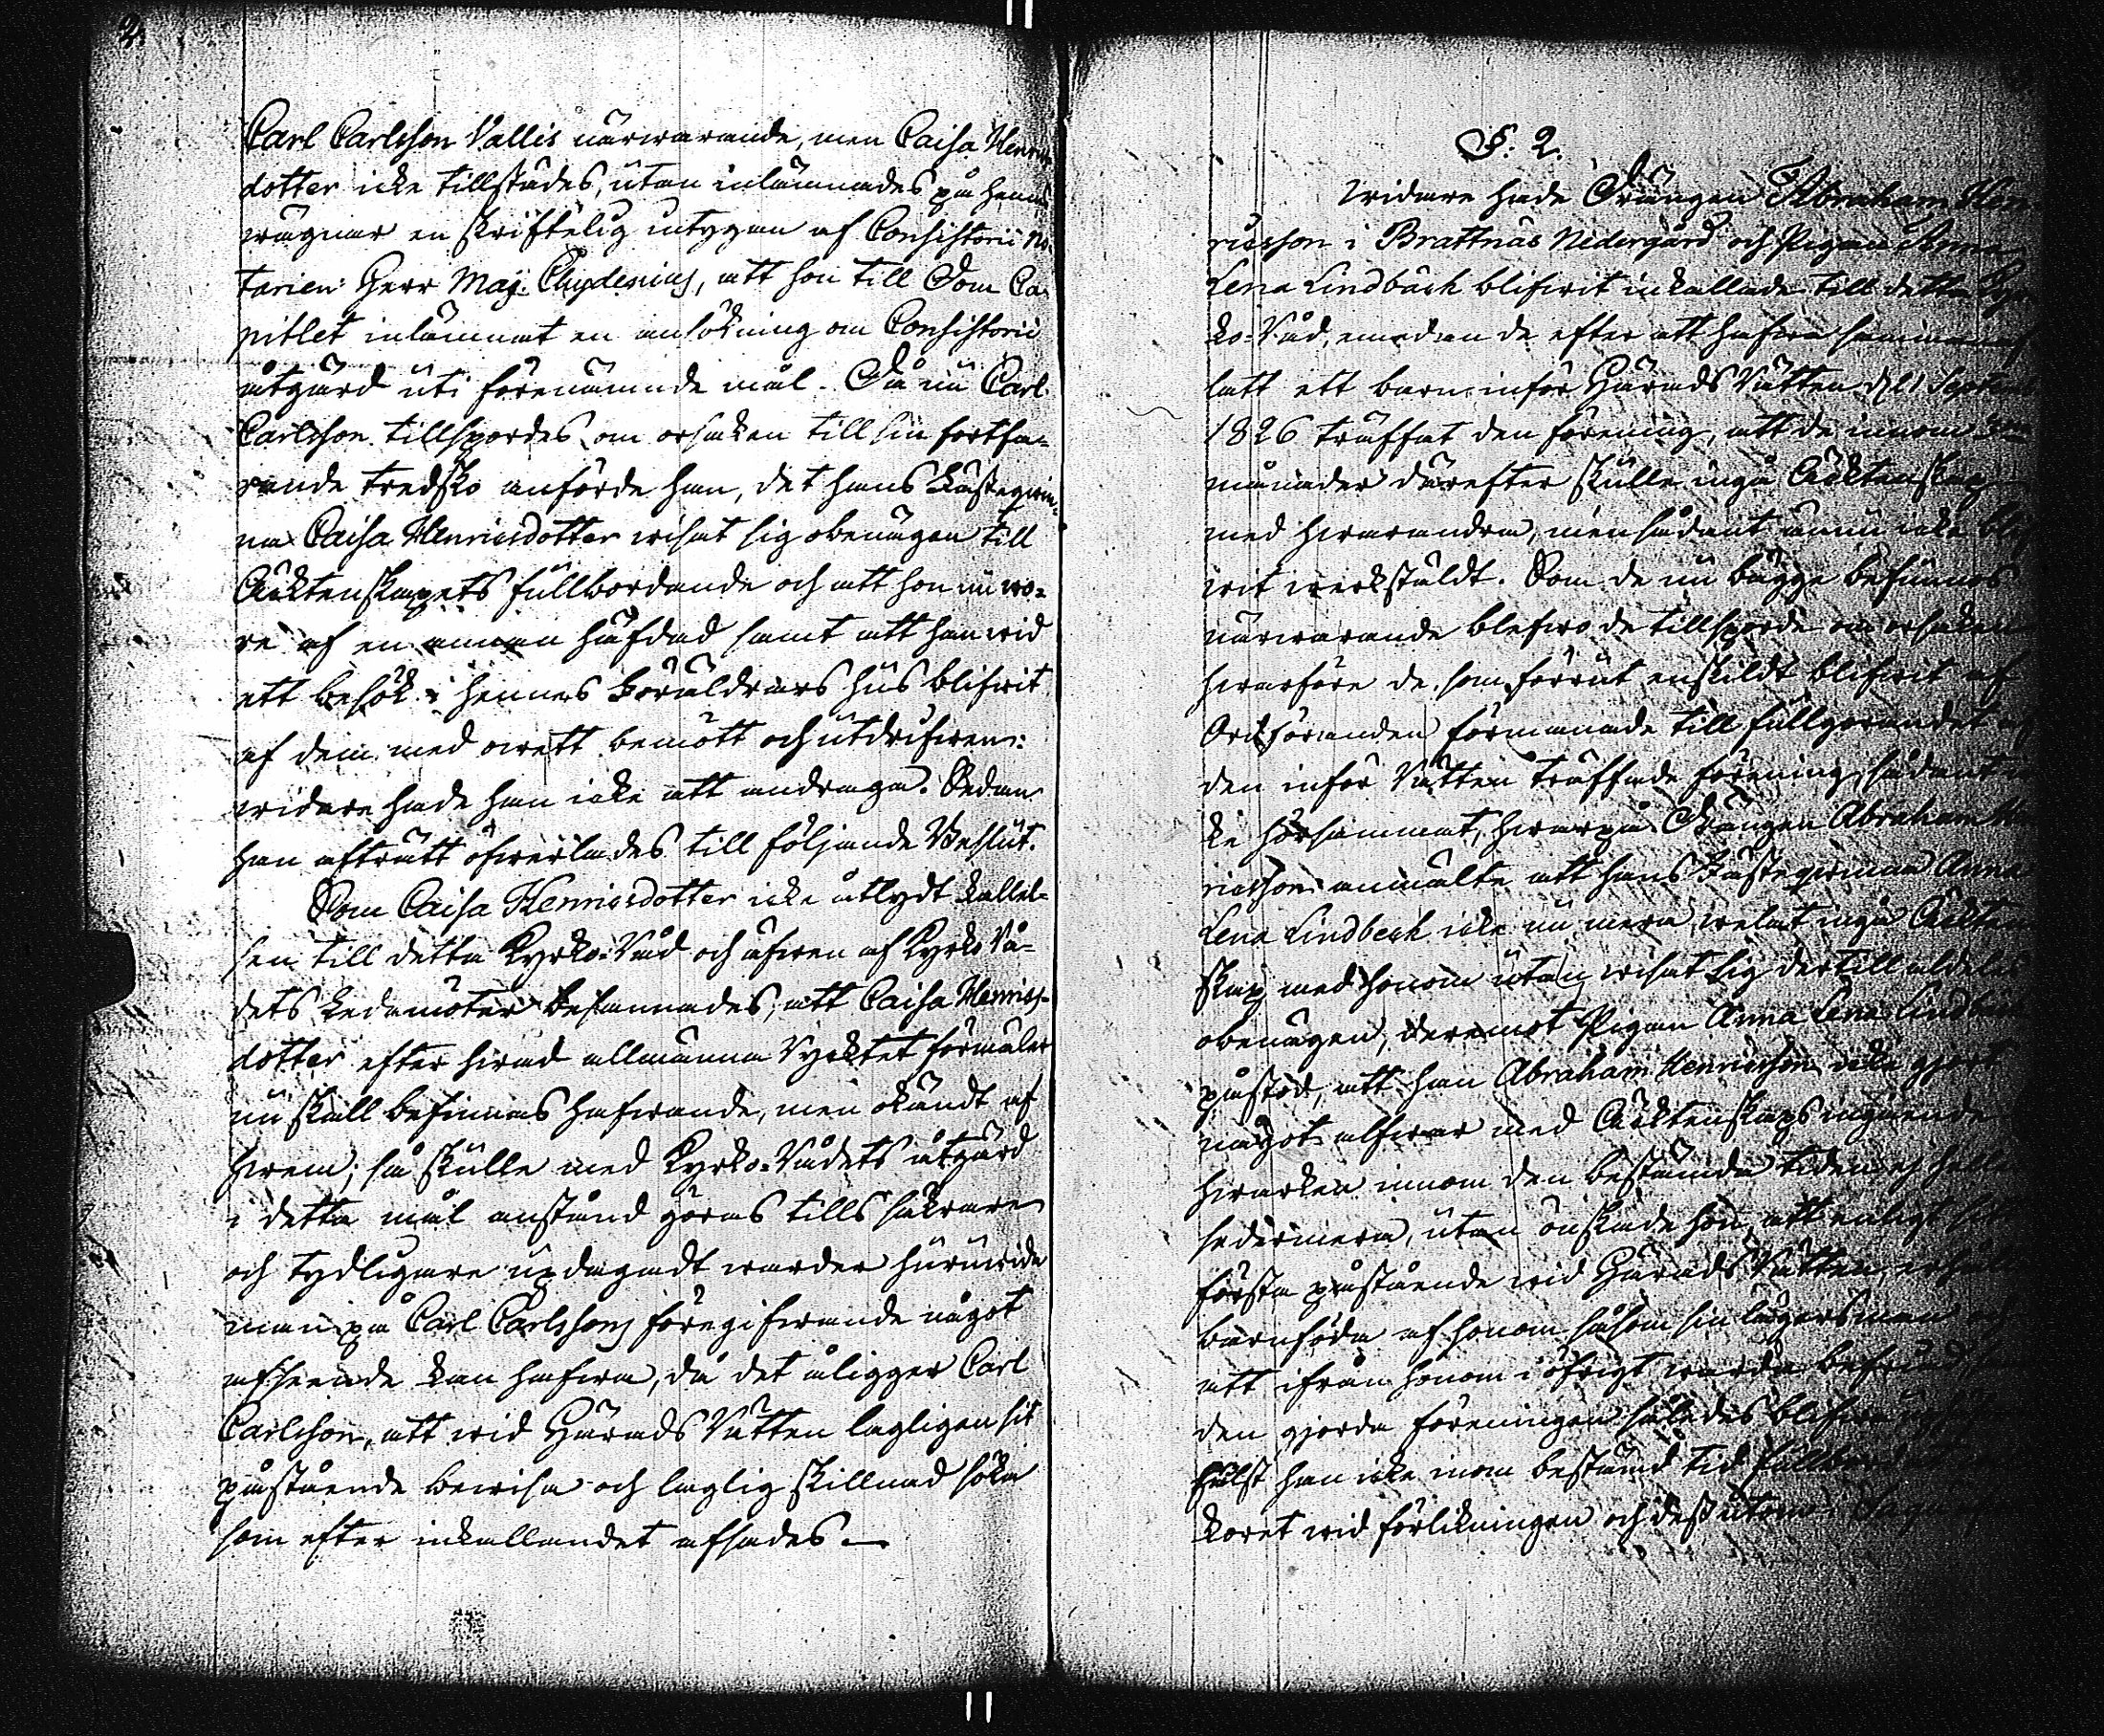 2.
Carl Carlsson Vallis närwarande, men Caisa Henrics
dotter icke tillstädes, utan inlämnades på hennes
wägnar en skriftelig intygan af Consistorii No
tarien Herr Mag: Chydenius, att hon till Dom Ca
pitlet inlämnat en ansökning om Consistorii
åtgärd uti förenämnde mål. Då nu Carl
Carlsson tillspordes om orsaken till sin fortfa-
rande tredsko anförde han, det hans Fästeqwin-
na Caisa Henricsdotter wisat sig obenägen till
Äcktenskapets fullbordande och att hon nu wo-
re af en annan häfdad samt att han wid
ett besök i hennes Föräldrars hus blifwit
af dem med owett bemött och utdrifwen:
widare hade han icke att andraga. Sedan
han afträtt öfwerlades till följande Beslut.
Som Caisa Henricsdotter icke åtlydt kallel-
sen till detta Kyrko-Råd och äfwen af Kyrko Rå-
dets Ledamöter besannades, att Caisa Henrics-
dotter efter hwad allmänna Ryktet förmäler
nu skall befinnas hafwande, men okändt af
hwem; så skulle med Kyrko-Rådets åtgärd
i detta mål anstånd göras tills säkrare
och tydligare updagadt warder huruwida
man på Carl Carlssons föregifwande något
afseende kan hafwa, då det åligger Carl
Carlsson, att wid Härads Rätten lagligen sit
påstående bewisa och laglig skillnad söka
som efter inkallandet afsades.—
§. 2.
Widare hade Drängen Abraham Hen-
ricsson i Brattnäs Nedergård och Pigan Anna
Lena Lindbäck blifwit inkallade till detta Kyr
ko-Råd, emedan de efter att hafwa samman af
lat ett barn inför Härads Rätten d. 1 Septemb
1826 träffat den förening, att de innom
månader därefter skulle ingå Äcktenskap
med hwarandra, men sådant ännu icke blif
wit werkstäldt. Som de nu bägge befunnos
närwarande blefwo de tillsporde om orsaken
hwarföre de, som förrut enskildt blifwit af
Ordföranden förmanade till fullgörandet af
den inför Rätten träffade förening, sådant ic
ke hörsammat, hwarpå Drängen Abraham Hen
ricsson anmälte att hans Fästeqwinna Anna
Lena Lindbeck icke nu mera welat ingå Äckten
skap med honom utan wisat sig dertill aldeles
obenägen, deremot Pigan Anna Lena Lindbeck
påstod, att han Abraham Henricsson icke gjort
något alfwar med Äcktenskaps ingående
hwarken innom den bestämda tiden ej heller
sedermera, utan önskade hon, att enligt sit
första påstående wid Härads Rätten, erhålla
barnföda af honom såsom sin lägersman och
att ifrån honom i öfrigt warda befriad,
den gjorda föreningen således blifwa
hälst han icke inom bestämd tid fullbord
koret wid förlikningen och dessutom